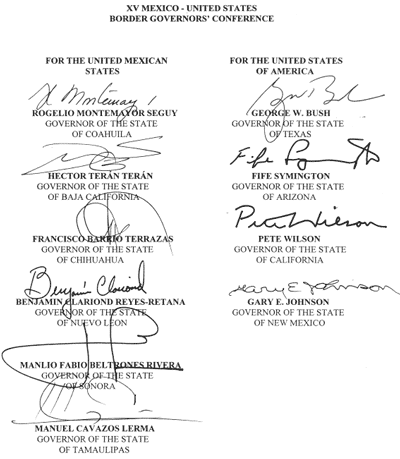 XV MEXICO - UNITED STATES
BORDER GOVERNORS' CONFERENCE
FOR THE UNITED MEXICAN
STATES
ROGELIO MONTEMAYOR SEGUY
GOVERNOR OF THE STATE
OF COAHUILA
HECTOR TERAN TERÁN
GOVERNOR OF THE STATE
OF BAJA CALIFORNIA
FRANCISCO BARRIO TERRAZAS
GOVERNOR OF THE STATE
OF CHIHUAHUA
Benjamin Clariond
BENJAMIN CLARIOND REYES-RETANA
GOVERNOR OF THE STATE
OF NUEVO LEON
MANLIO FABIO BELTRONES RIVERA
GOVERNOR OF THE STATE
OF SONORA
MANUEL CAVAZOS LERMA
GOVERNOR OF THE STATE
OF TAMAULIPAS
FOR THE UNITED STATES
OF AMERICA
GEORGE W. BUSH
GOVERNOR OF THE STATE
OF TEXAS
Fife Symington
FIFE SYMINGTON
GOVERNOR OF THE STATE
OF ARIZONA
Pete Wilson
PETE WILSON
GOVERNOR OF THE STATE
OF CALIFORNIA
Gary E Johnson
GARY E. JOHNSON
GOVERNOR OF THE STATE
OF NEW MEXICO